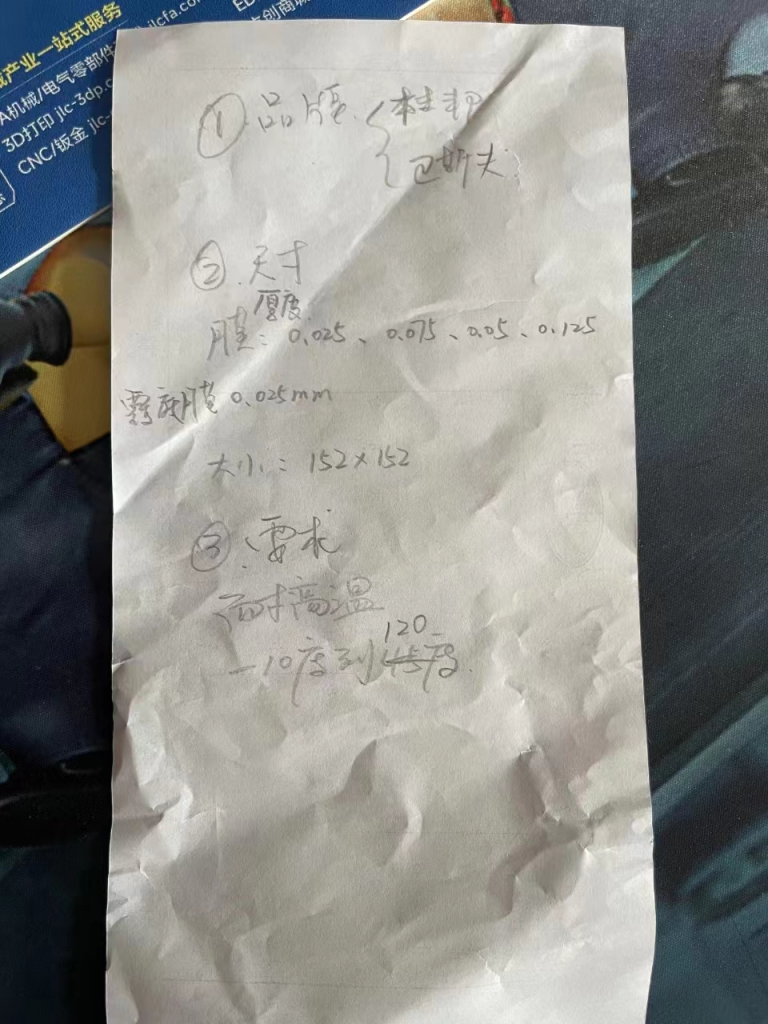 械产业一站式服务
A机械/电气零部件 jlcfa.co
3D打印 jlc-3dp.c
CNC/钣金 jlc-
① 品牌 { 杜邦
巴斯夫
② 尺寸
厚度
膜: 0.025、0.075、0.05、0.125
膜 0.025mm
大小: 152×152
③ 要求
耐高温
120
-10度到45度